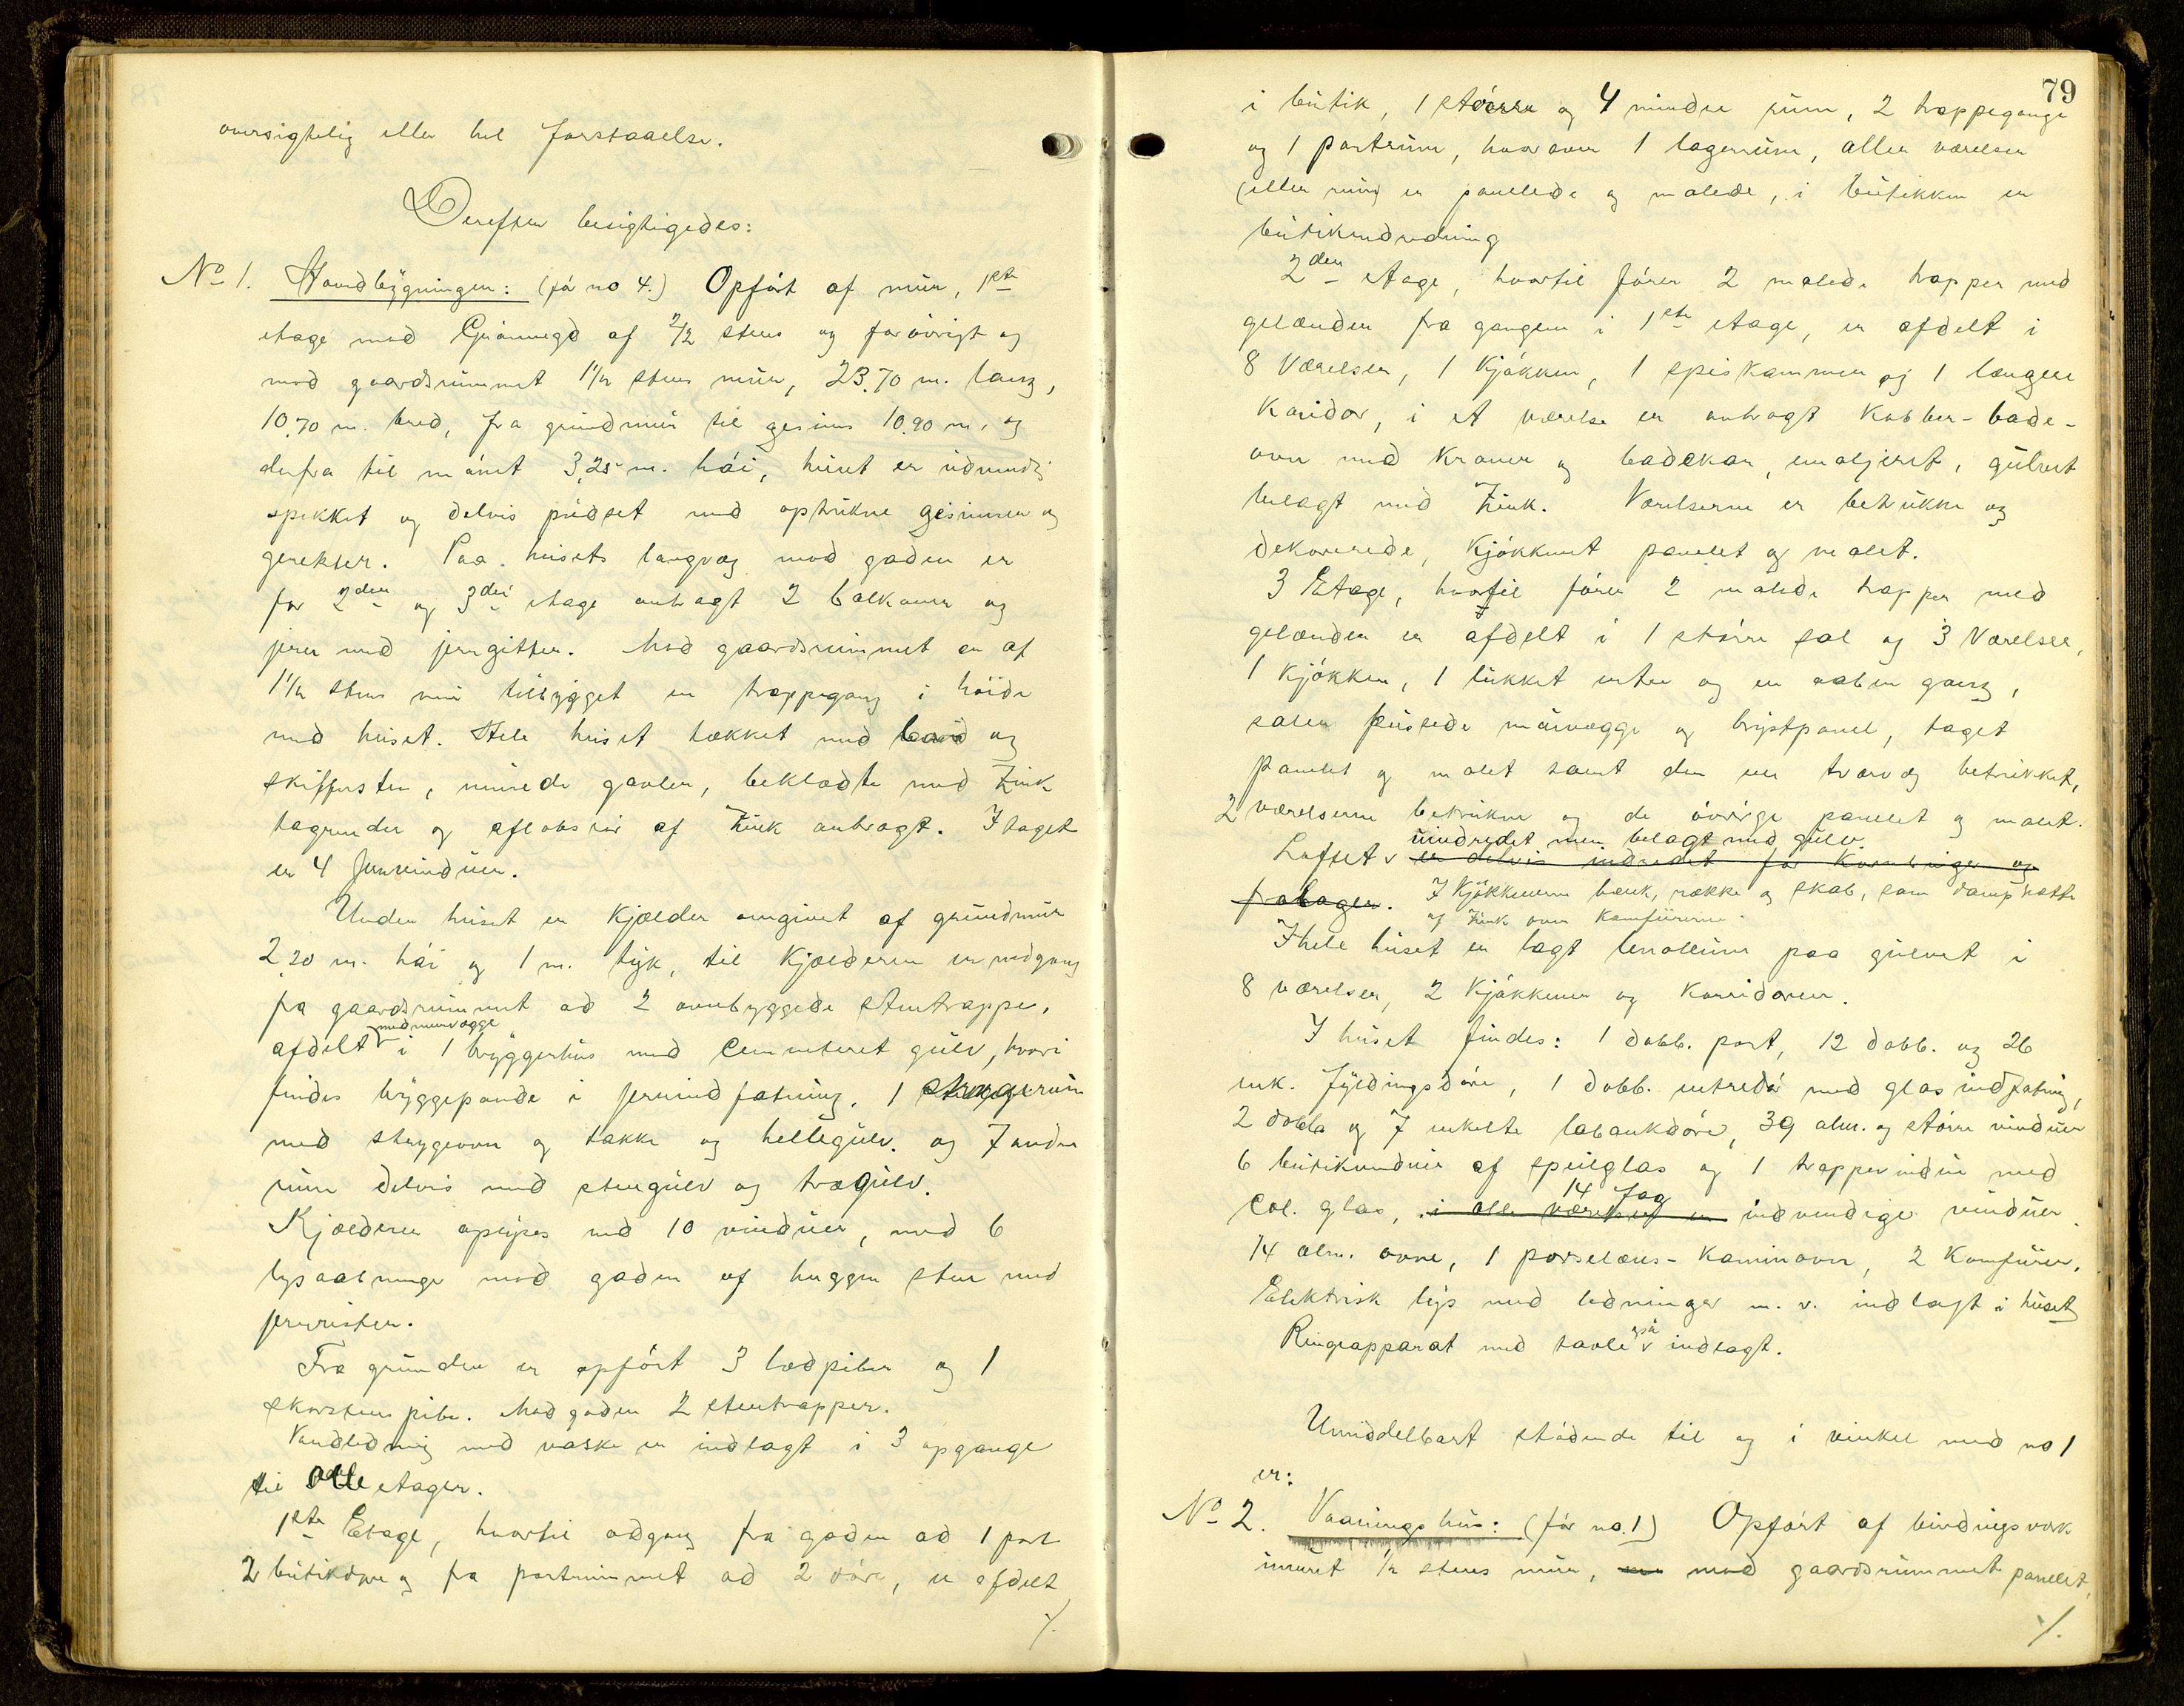 oversigtelig eller hel forstaaelse.
Derefter besigtigedes:
No 1. Hovedbygningen: (før no 4.) Opført af mur, 1ste
etage mod Grønnegd af 2/2 stens og forøvrigt og
mod gaardsrummet 1 1/2 stens mur, 23,70 m. lang,
10,70 m. bred, fra grundmur til gesims 10,90 m. og
derfra til mønet 3,25 m. høi, huset er udvendig
spekket og delvis pudset med optrukne gesimser og
gerekter. Paa husets langvæg mod gaden er
for 2den og 3die etage anbragt 2 balkoner og
jern med jerngitter. Mod gaardsrummet er af
1 1/2 stens mur tilbygget en trappegang i høide
med huset. Hele huset tækket med bord og
skifersten, murede gavler, beklædte med Zink
tagrender og afløbsrør af Zink anbragt. I taget
er 4 jernvinduer.
Under huset er Kjælder omgivet af grundmur
2,20 m. høi og 1 m. tyk, til Kjælderen er nedgang
fra gaardsrummet ad 2 overbyggede stentrappe,
med murvægge
afdelt i 1 bryggerhus med Cementeret gulv, hvori
findes bryggepande i jernindfatning. 1 strygerum
med strygeovn og takke og hellegulv. og 7 andre
rum delvis med stengulv og trægulv.
Kjælderen oplyses ved 10 vinduer, med 6
lysaabninger mod gaden af huggen sten med
jernrister.
Fra grunden er opført 3 lødpiber og 1
skorstenspibe. Mod gaden 2 stentrapper.
Vandledning med vaske er indlagt i 3 opgange
til alle etager.
1ste Etage, hvortil adgang fra gaden ad 1 port
2 butikdøre og fra portrummet ad 2 døre, er afdelt
./.
79
i butik, 1 større og 4 mindre rum, 2 trappegange
og 1 portrum, hvorover 1 lagerrum, alle værelser
(eller rum) er panelede og malede, i butikken er
butikindredning
2den etage, hvortil fører 2 malede trapper med
gelænder fra gangen i 1ste etage, er afdelt i
8 Værelser, 1 Kjøkken, 1 spiskammer og 1 længere
Koridor, i et værelse er anbragt Kobber-bade-
ovn med Kraner og badekar, emaljeret, gulvet
belagt med Zink. Værelserne er betrukne og
dekorerede, Kjøkkenet panelet og malet.
3 Etage, hvortil fører 2 malede trapper med
gelænder er afdelt i 1 større sal og 3 Værelser,
1 Kjøkken, 1 lukket entre og en aaben gang,
salen pussede murvægge og brystpanel, taget
panelet og malet samt den ene tværvæg betrukket,
2 værelserne betrukne og de øvrige panelet og malet.
uindredet men belagt med gulv.
Loftet er delvis indredet for Kornbinge og
frølager. I Kjøkkenerne bænk, række og skab, som damphatte
af Zink over Komfurerne.
I hele huset er lagt linolium paa gulvet i
8 værelser, 2 Kjøkkener og Korridorer.
I huset findes: 1 dobb. port, 12 dobb. og 26
enk. fyldingsdøre, 1 dobb. entredør med glasindfatning,
2 dobb. og 7 enkelte labankdøre, 39 alm. og større vinduer
6 butikvinduer af speilglas og 1 trappevindue med
14 Fag
Col. glas, i alle værelser er indvendige vinduer.
14 alm. ovne, 1 porselæns-Kaminovn, 2 Komfurer,
Elektrisk lys med ledninger m. v. indlagt i huset
også
Ringeapparat med tavle indlagt.
Umiddelbart stødende til og i vinkel med no 1
er:
No 2. Vaaningshus: (før no. 1) Opført af bindingsverk
imuret 1/2 stens mur, mod gaardsrummet panelet,
./.